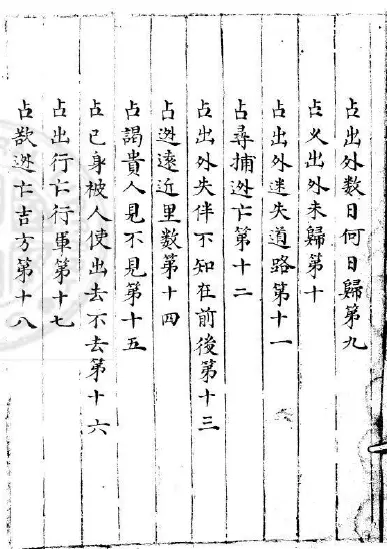 占出外数日何日歸第九
占人出外未歸第十
占出外迷失道路第十一
占尋捕迯亡第十二
占出外失伴不知在前後第十三
占迯遠近里数第十四
占謁貴人見不見第十五
占已身被人使出去不去第十六
占出行亡行軍第十七
占欲迯亡吉方第十八